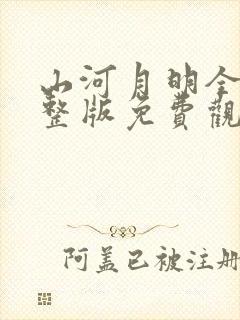 山河月明全
整版免費觀
阿盖已被注册